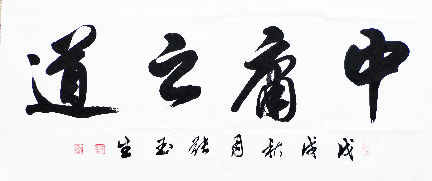 中庸之道
戊戌秋月张玉生